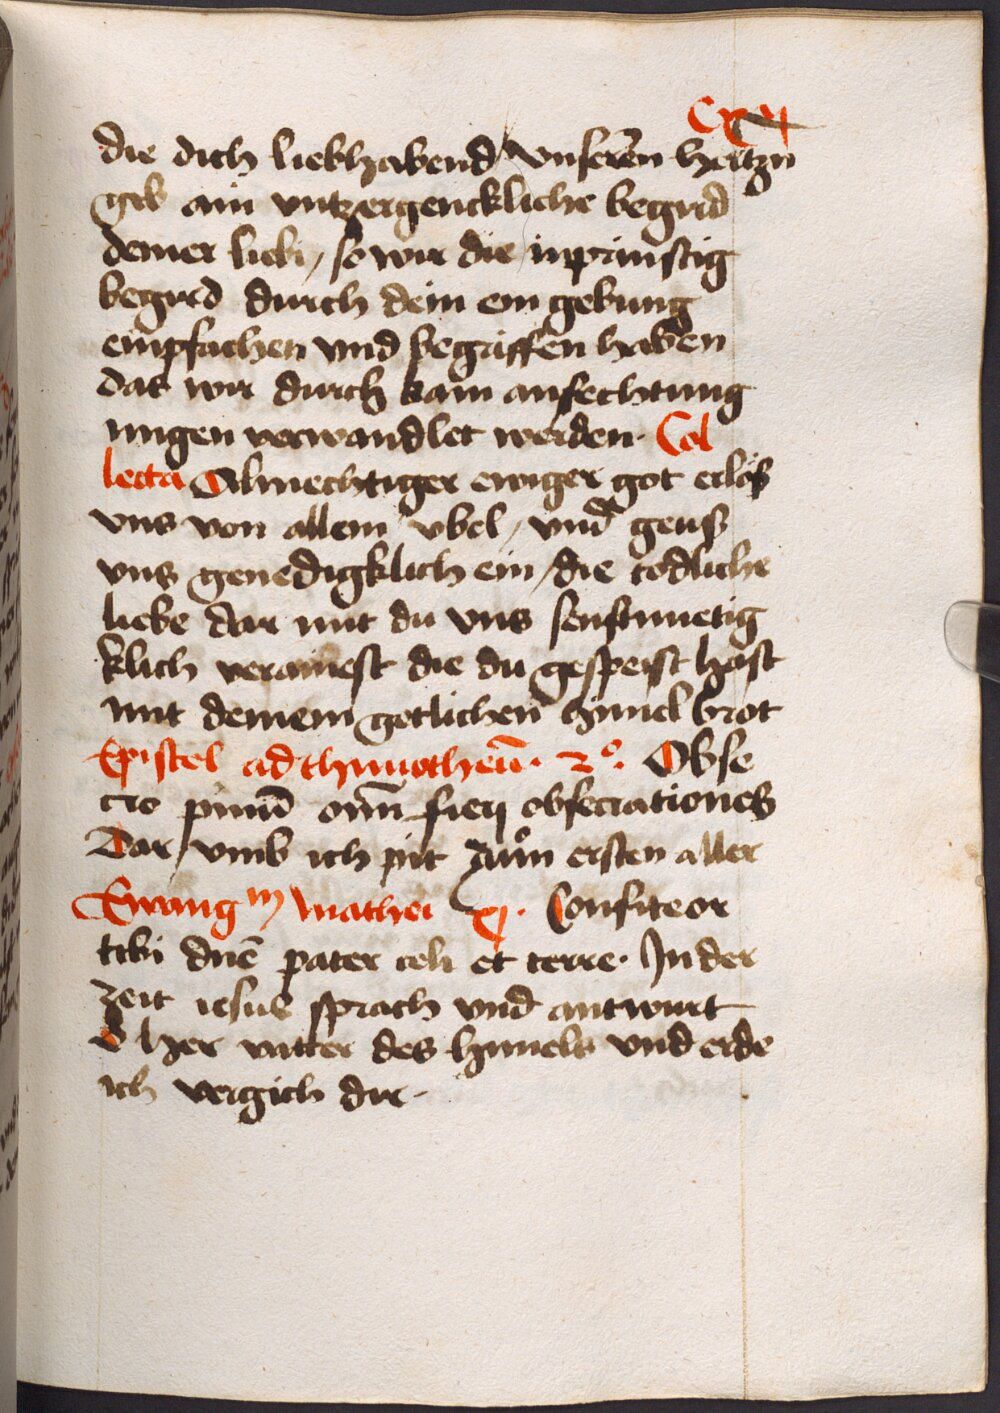 Cxvij
die dich liebhabend / vnseren hertzn
gib ain vntzergenckliche begird
deiner liebi / so wir die inprinstig
begird durch dein ein gebung
empfachen vnd begriffen haben
das wir durch kain anfechtung
mugen verwandlet werden. Col
lecta Almechtiger ewiger got erlös
vns von allem vbel / vnd geuß
vns genedigklich ein / die tödliche
liebe dar mit du vns senftmuetig
klich verainest die du gespeist hast
mit deinem gotlichen himel brot
Epistel ad thimotheū. 2º. Obse
cro primū om̄ fieri obsecrationes
Dar vmb ich pit zům ersten aller
Ewangm mathei xj. Confiteor
tibi dn̄e pater celi et terre. In der
zeit iesus sprach vnd antwurt
O her vatter des himels vnd erde
ich vergich dir.